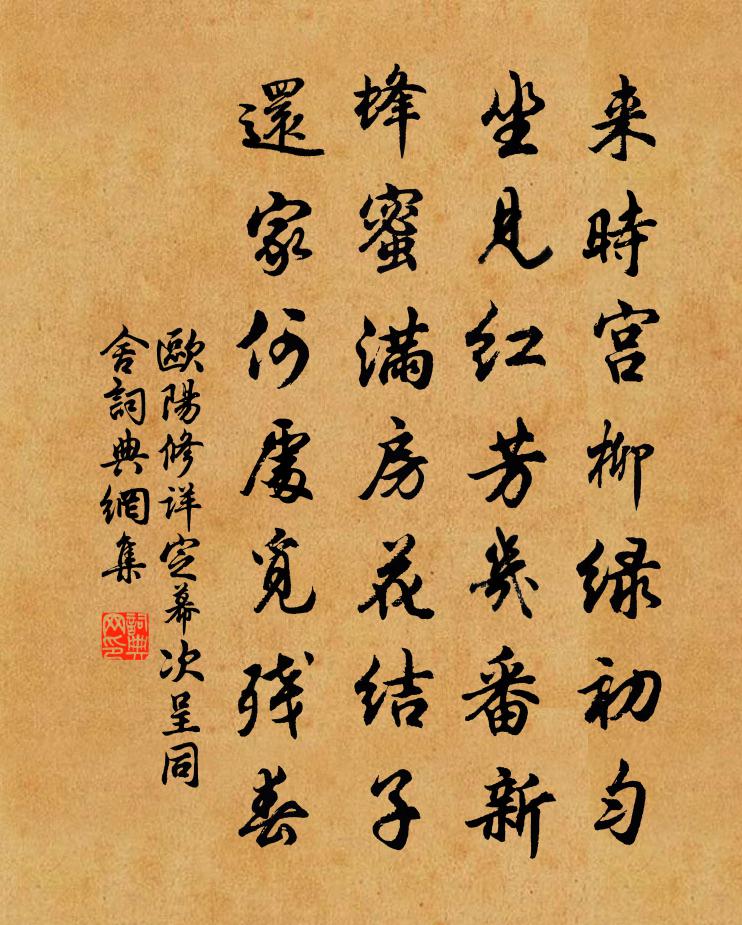 来時宫柳绿初匀
坐見红芳幾番新
蜂蜜满房花结子
還家何處覓残春
歐陽修详定幕次呈同
舍詞典網集
詞典网印